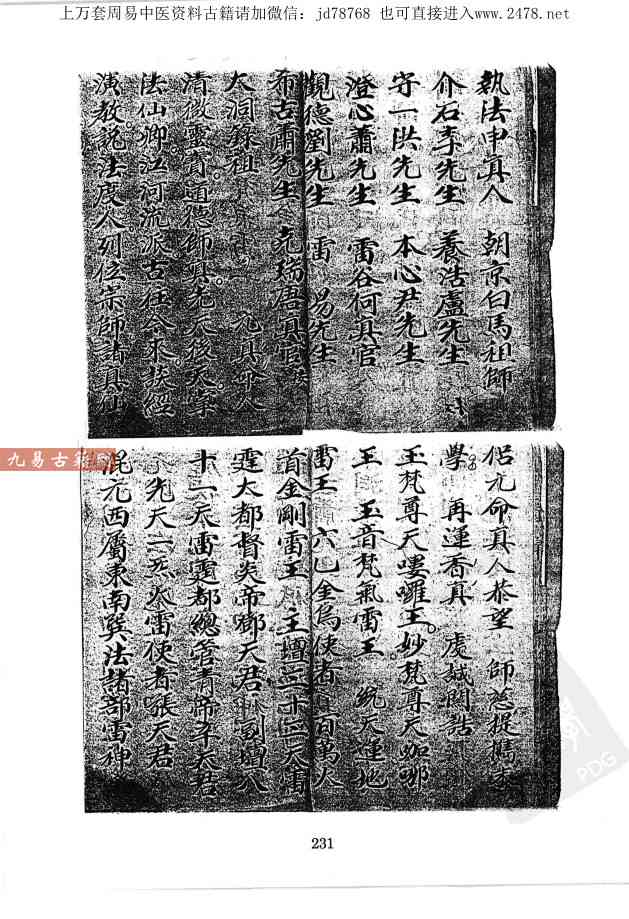 上万套周易中医资料古籍请加微信：jd78768 也可直接进入www.2478.net
執法申真人 朝京白馬祖師
介石李先生 養浩盧先生
守一洪先生 本心尹先生
澄心蕭先生 雷谷何真官
觀德劉先生 雷 易先生
布古蕭先生 堯瑞唐真官
大洞錄祖 元真命人
清微靈寶道德師真。先天後天宗
法仙卿江河流派古往今來。扶經
演教說法度人。列位宗師諸真仙
侶九命真人恭望 師慈提携
學 再運香真 虔誠閞誥
玉梵尊天嘍囉王。妙梵尊天咖哪
王 玉音梵氣雷王 統天運地
雷王 六乙金烏使者 百萬火
首金剛雷主 主壇三十三天雷
霆大都督炎帝鄧天君 副壇八
十一天雷霆都總管青帝辛天君
先天一炁火雷使者張天君
混元西屬東南巽法諸部雷神
九易古籍网
PDG
231